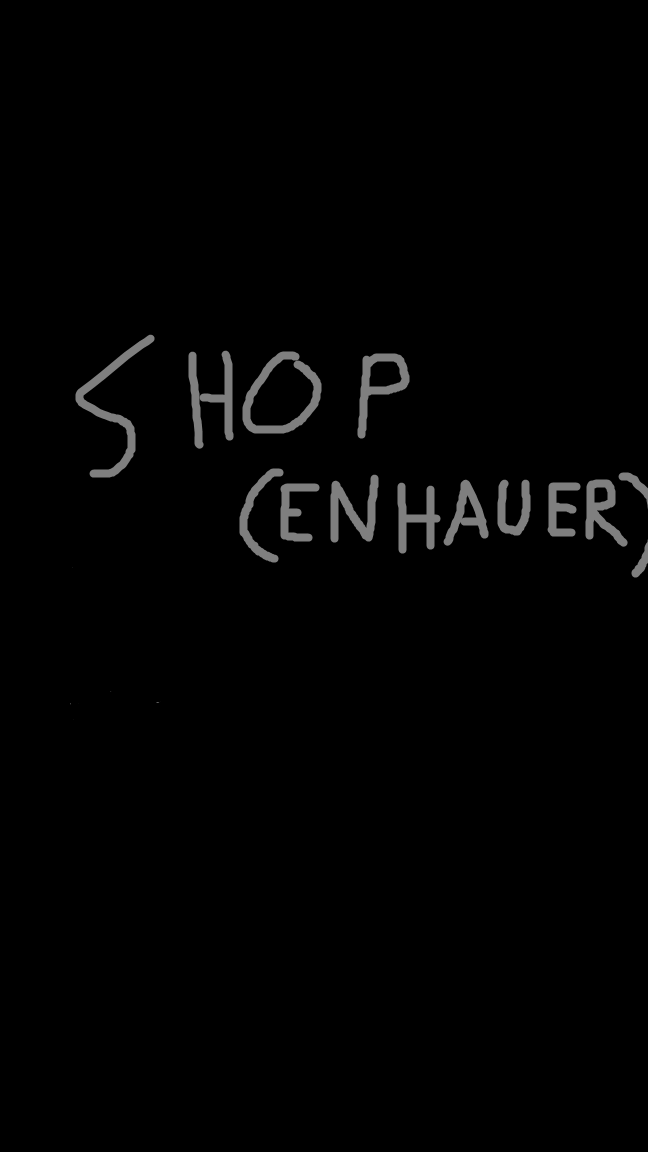 SHOP
(ENHAUER)